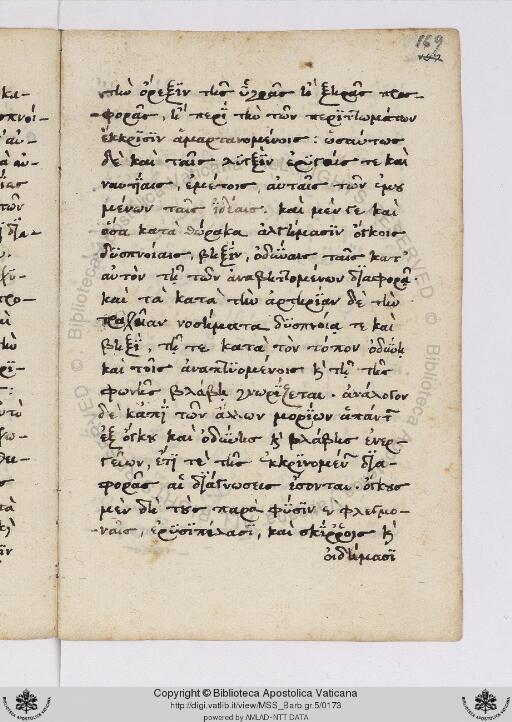 169
τὴν ὄρεξιν τῆς ὑγρᾶς ἢ ξηρᾶς προσ-
φορᾶς, ἢ περὶ τὴν τῶν περιττωμάτων
ἔκκρισιν ἁμαρτανομένοις: ὡσαύτως
δὲ καὶ ταῖς λύγξιν ἐρυγαῖς τε καὶ
ναυτίαις, ἐμέτοις, αὐταῖς τῶν ἐμου
μένων ταῖς ἰδέαις. καὶ μέν γε καὶ
ὅσα κατὰ θώρακα ἀλγήμασιν ὄγκοις
δυσπνοίαις, βηξὶν, ὀδύναις ταῖς κατ'
αὐτὸν τῇ τῶν ἀναβηττομένων διαφορᾷ.
καὶ τὰ κατὰ τὴν ἀρτηρίαν δὲ τὴν
τραχεῖαν νοσήματα δύσπνοιά τε καὶ
βηξὶ, τῇ τε κατὰ τὸν τόπον ὀδύνῃ
καὶ τοῖς ἀναπτυομένοις κ τῇ τῆς
φωνῆς βλάβῃ γνωρίζεται. ἀνάλογον
δὲ κἀπὶ τῶν ἄλλων μορίων ἁπάντ
ἐξ ὄγκου καὶ ὀδύνης κ βλάβης ἐνερ-
γειῶν, ἔτι τε τῆς ἐκκρινομέν δια-
φορᾶς αἱ διαγνώσεις ἔσονται. ὄγκους
μὲν δὴ τοὺς παρὰ φύσιν ἐν φλεγμο-
ναῖς, ἐρυσιπέλασι, καὶ σκίρροις κ
οἰδήμασι
Copyright © Biblioteca Apostolica Vaticana
http://digi.vatlib.it/view/MSS_Barb.gr.5/0173
powered by AMLAD-NTT DATA